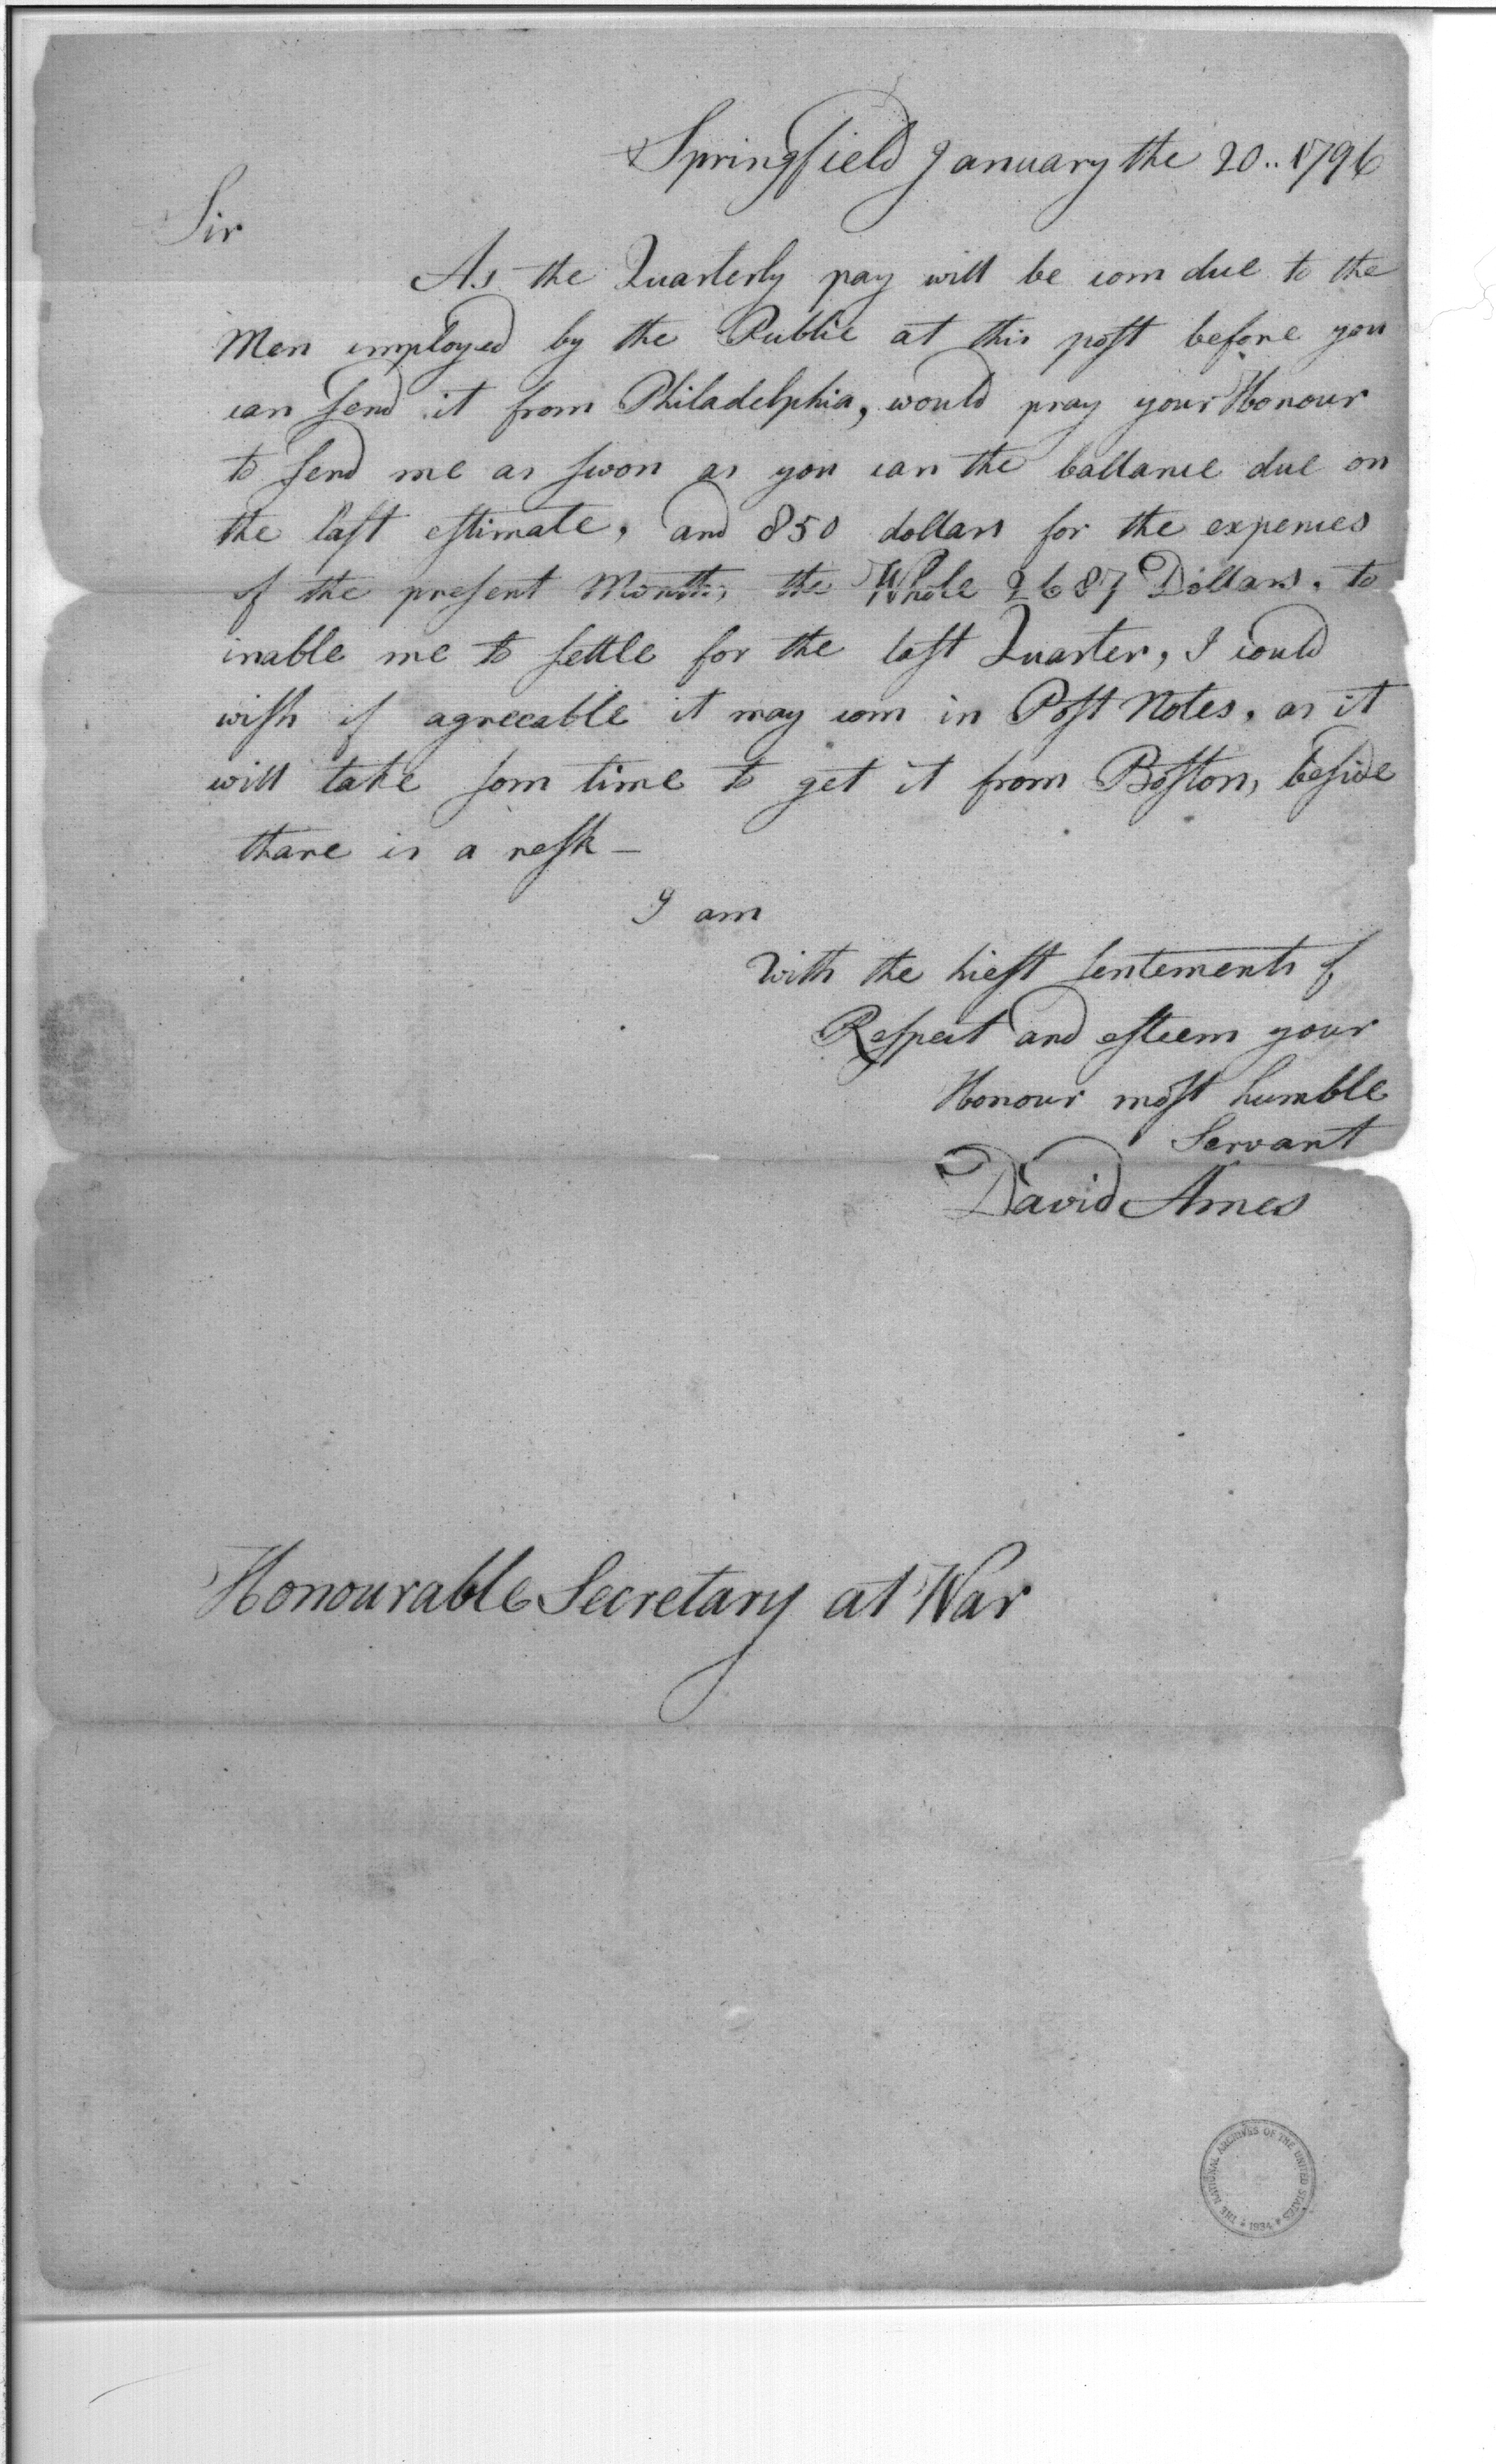 Springfield January the 20.. 1796
Sir
As the Quarterly pay will be com due to the
Men employed by the Public at this post before you
can send it from Philadelphia, would pray your Honour
to send me as swon as you can the ballance due on
the last estimate, and 850 dollars for the expences
of the present Month, the Whole 2687 Dollars, to
inable me to settle for the last Quarter, I could
wish if agreeable it may com in Post Notes, as it
will take som time to get it from Boston, beside
thare is a resk –
I am
With the hiest sentements of
Respect and esteem your
Honour most humble
Servant
David Ames
Honourable Secretary at War
THE NATIONAL ARCHIVES OF THE UNITED STATES
1934